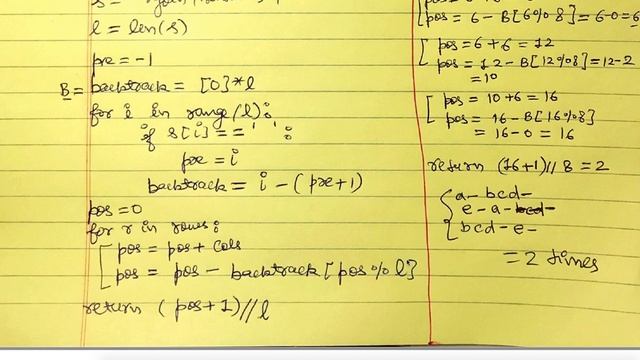 l = len(s)
pre = -1
B = backtrack = [0]*l
for i in range(l):
if s[i] == ' ':
pre = i
backtrack = i - (pre+1)
pos = 0
for r in rows:
pos = pos + cols
pos = pos - backtrack[pos % l]
return (pos+1)//l
pos = 6 - B[6%8] = 6-0 = 6
pos = 6 + 6 = 12
pos = 12 - B[12%8] = 12-2
= 10
pos = 10 + 6 = 16
pos = 16 - B[16%8]
= 16 - 0 = 16
return (16+1)//8 = 2
a - bcd -
e - a - bcd -
bcd - e -
= 2 times